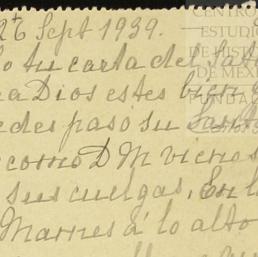 26 Sept 1939.
tu carta del
a Dios estes bien
edes paso su Santo
como D M vienes
sus cuelgas. En l
Marnes á lo alto
CENTRO
ESTUDIO
DE HISTO
DE MEXI
FUNDA